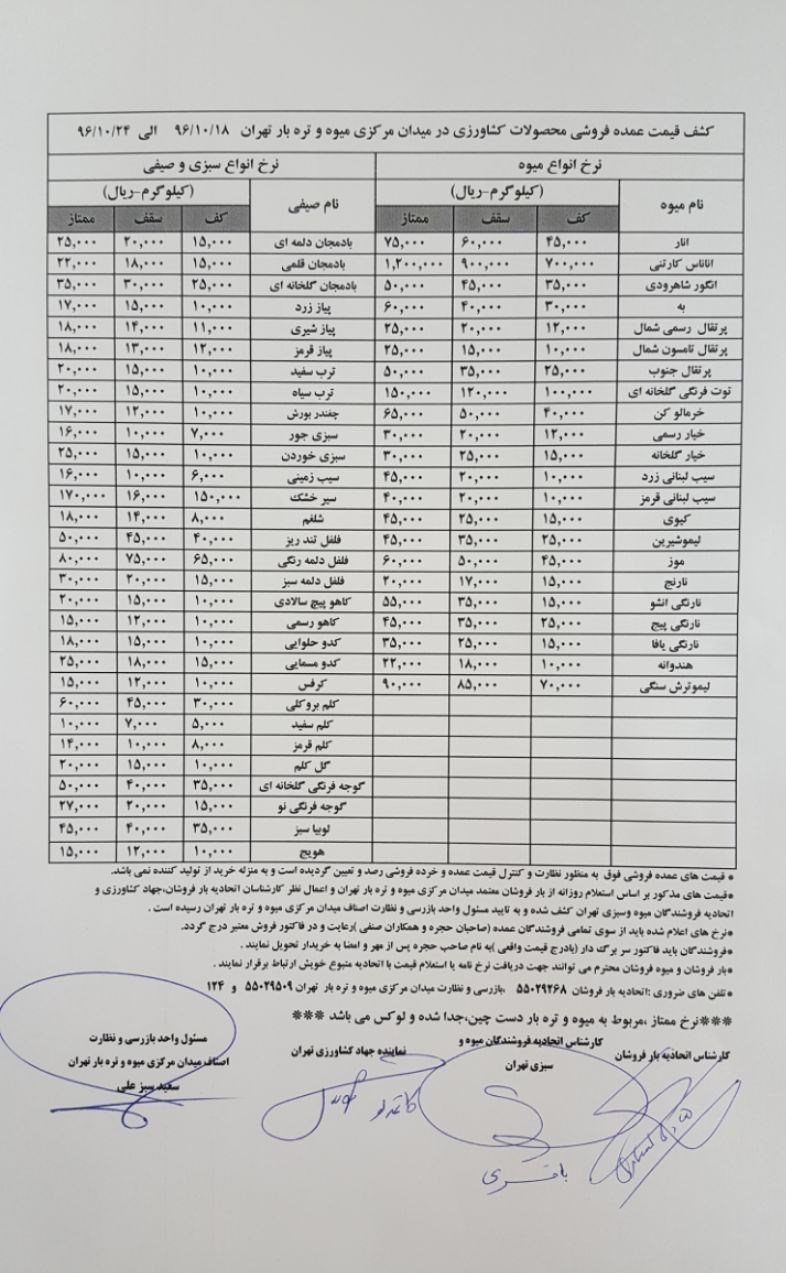 کشف قیمت عمده فروشی محصولات کشاورزی در میدان مرکزی میوه و تره بار تهران ۹۶/۱۰/۱۸ الی ۹۶/۱۰/۲۴
نرخ انواع میوه نرخ انواع سبزی و صیفی
نام میوه (کیلوگرم-ریال) نام صیفی (کیلوگرم-ریال)
کف سقف ممتاز کف سقف ممتاز
انار ۴۵,۰۰۰ ۶۰,۰۰۰ ۷۵,۰۰۰ بادمجان دلمه ای ۱۵,۰۰۰ ۲۰,۰۰۰ ۲۵,۰۰۰
اناناس کارتنی ۷۰۰,۰۰۰ ۹۰۰,۰۰۰ ۱,۲۰۰,۰۰۰ بادمجان قلمی ۱۵,۰۰۰ ۱۸,۰۰۰ ۲۲,۰۰۰
انگور شاهرودی ۳۵,۰۰۰ ۴۵,۰۰۰ ۵۰,۰۰۰ بادمجان گلخانه ای ۲۵,۰۰۰ ۳۰,۰۰۰ ۳۵,۰۰۰
به ۳۰,۰۰۰ ۴۰,۰۰۰ ۶۰,۰۰۰ پیاز زرد ۱۰,۰۰۰ ۱۵,۰۰۰ ۱۷,۰۰۰
پرتقال رسمی شمال ۱۲,۰۰۰ ۲۰,۰۰۰ ۲۵,۰۰۰ پیاز شیری ۱۱,۰۰۰ ۱۴,۰۰۰ ۱۸,۰۰۰
پرتقال تامسون شمال ۱۰,۰۰۰ ۱۵,۰۰۰ ۲۵,۰۰۰ پیاز قرمز ۱۲,۰۰۰ ۱۳,۰۰۰ ۱۸,۰۰۰
پرتقال جنوب ۲۵,۰۰۰ ۳۵,۰۰۰ ۵۰,۰۰۰ ترب سفید ۱۰,۰۰۰ ۱۵,۰۰۰ ۲۰,۰۰۰
توت فرنگی گلخانه ای ۱۰۰,۰۰۰ ۱۲۰,۰۰۰ ۱۵۰,۰۰۰ ترب سیاه ۱۰,۰۰۰ ۱۵,۰۰۰ ۲۰,۰۰۰
خرمالو کن ۴۰,۰۰۰ ۵۰,۰۰۰ ۶۵,۰۰۰ چغندر بورش ۱۰,۰۰۰ ۱۲,۰۰۰ ۱۷,۰۰۰
خیار رسمی ۱۲,۰۰۰ ۲۰,۰۰۰ ۳۰,۰۰۰ سبزی جور ۷,۰۰۰ ۱۰,۰۰۰ ۱۶,۰۰۰
خیار گلخانه ۱۵,۰۰۰ ۲۵,۰۰۰ ۳۰,۰۰۰ سبزی خوردن ۱۰,۰۰۰ ۱۵,۰۰۰ ۲۵,۰۰۰
سیب لبنانی زرد ۱۰,۰۰۰ ۲۰,۰۰۰ ۴۵,۰۰۰ سیب زمینی ۶,۰۰۰ ۱۰,۰۰۰ ۱۶,۰۰۰
سیب لبنانی قرمز ۱۰,۰۰۰ ۲۰,۰۰۰ ۴۰,۰۰۰ سیر خشک ۱۵۰,۰۰۰ ۱۶,۰۰۰ ۱۷۰,۰۰۰
کیوی ۱۵,۰۰۰ ۲۵,۰۰۰ ۴۵,۰۰۰ شلغم ۸,۰۰۰ ۱۴,۰۰۰ ۱۸,۰۰۰
لیموشیرین ۲۵,۰۰۰ ۳۵,۰۰۰ ۴۵,۰۰۰ فلفل تند ریز ۴۰,۰۰۰ ۴۵,۰۰۰ ۵۰,۰۰۰
موز ۴۵,۰۰۰ ۵۰,۰۰۰ ۶۰,۰۰۰ فلفل دلمه رنگی ۶۵,۰۰۰ ۷۵,۰۰۰ ۸۰,۰۰۰
نارنج ۱۵,۰۰۰ ۱۷,۰۰۰ ۲۰,۰۰۰ فلفل دلمه سبز ۱۵,۰۰۰ ۲۰,۰۰۰ ۳۰,۰۰۰
نارنگی انشو ۱۵,۰۰۰ ۳۵,۰۰۰ ۵۵,۰۰۰ کاهو پیچ سالادی ۱۰,۰۰۰ ۱۵,۰۰۰ ۲۰,۰۰۰
نارنگی پیج ۲۵,۰۰۰ ۳۵,۰۰۰ ۴۵,۰۰۰ کاهو رسمی ۱۰,۰۰۰ ۱۲,۰۰۰ ۱۵,۰۰۰
نارنگی یافا ۱۵,۰۰۰ ۲۵,۰۰۰ ۳۵,۰۰۰ کدو حلوایی ۱۰,۰۰۰ ۱۵,۰۰۰ ۱۸,۰۰۰
هندوانه ۱۰,۰۰۰ ۱۸,۰۰۰ ۲۲,۰۰۰ کدو مسمایی ۱۵,۰۰۰ ۱۸,۰۰۰ ۲۵,۰۰۰
لیموترش سنگی ۷۰,۰۰۰ ۸۵,۰۰۰ ۹۰,۰۰۰ کرفس ۱۰,۰۰۰ ۱۲,۰۰۰ ۱۵,۰۰۰
کلم بروکلی ۳۰,۰۰۰ ۴۵,۰۰۰ ۶۰,۰۰۰
کلم سفید ۵,۰۰۰ ۷,۰۰۰ ۱۰,۰۰۰
کلم قرمز ۸,۰۰۰ ۱۰,۰۰۰ ۱۴,۰۰۰
گل کلم ۱۰,۰۰۰ ۱۵,۰۰۰ ۲۰,۰۰۰
گوجه فرنگی گلخانه ای ۳۵,۰۰۰ ۴۰,۰۰۰ ۵۰,۰۰۰
گوجه فرنگی نو ۱۵,۰۰۰ ۲۰,۰۰۰ ۲۷,۰۰۰
لوبیا سبز ۳۵,۰۰۰ ۴۰,۰۰۰ ۴۵,۰۰۰
هویج ۱۰,۰۰۰ ۱۲,۰۰۰ ۱۵,۰۰۰
* قیمت های عمده فروشی فوق به منظور نظارت و کنترل قیمت عمده و خرده فروشی رصد و تعیین گردیده است و به منزله خرید از تولید کننده نمی باشد.
*قیمت های مذکور بر اساس استعلام روزانه از بار فروشان معتمد میدان مرکزی میوه و تره بار تهران و اعمال نظر کارشناسان اتحادیه بار فروشان،جهاد کشاورزی و
اتحادیه فروشندگان میوه وسبزی تهران کشف شده و به تایید مسئول واحد بازرسی و نظارت اصناف میدان مرکزی میوه و تره بار تهران رسیده است .
*نرخ های اعلام شده باید از سوی تمامی فروشندگان عمده (صاحبان حجره و همکاران صنفی )رعایت و در فاکتور فروش معتبر درج گردد.
*فروشندگان باید فاکتور سر برگ دار (بادرج قیمت واقعی )به نام صاحب حجره پس از مهر و امضا به خریدار تحویل نمایند .
*بار فروشان و میوه فروشان محترم می توانند جهت دریافت نرخ نامه یا استعلام قیمت با اتحادیه متبوع خویش ارتباط برقرار نمایند .
*تلفن های ضروری :اتحادیه بار فروشان ۵۵۰۲۹۲۶۸ ،بازرسی و نظارت میدان مرکزی میوه و تره بار تهران ۵۵۰۲۹۵۰۹ و ۱۲۴
***نرخ ممتاز ،مربوط به میوه و تره بار دست چین،جدا شده و لوکس می باشد ***
کارشناس اتحادیه بار فروشان
کارشناس اتحادیه فروشندگان میوه و
سبزی تهران
نماینده جهاد کشاورزی تهران
مسئول واحد بازرسی و نظارت
اصناف میدان مرکزی میوه و تره بار تهران
سعید سبز علی
باقری